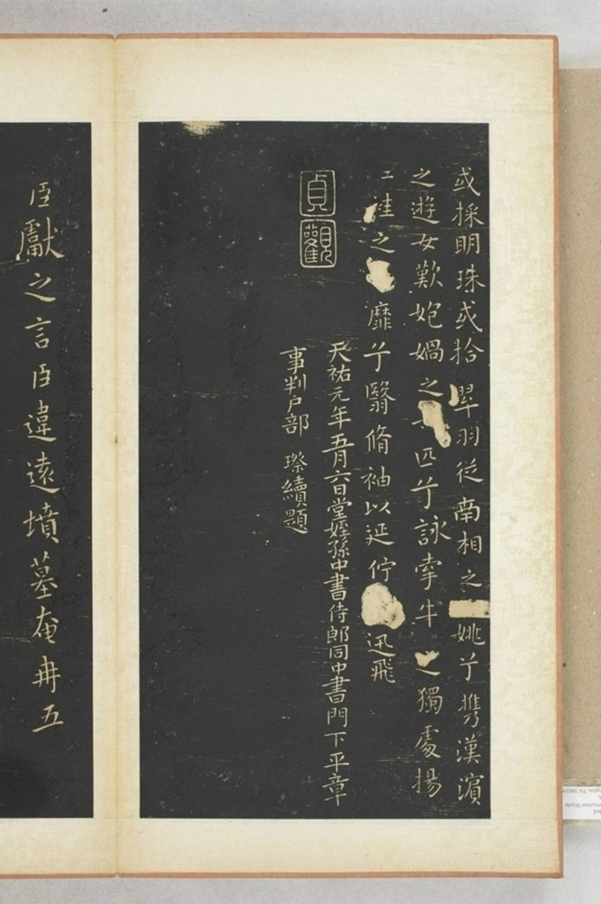 或採明珠或拾翠羽從南相之姚兮攜漢濱
之遊女歎妑媧之匹兮詠牽牛之獨處揚
袿之靡兮翳脩袖以延佇迅飛
貞觀
天祐元年五月六日堂姪孫中書侍郎同中書門下平章
事判户部璨續題
臣獻之言臣違遠墳墓奄冉五